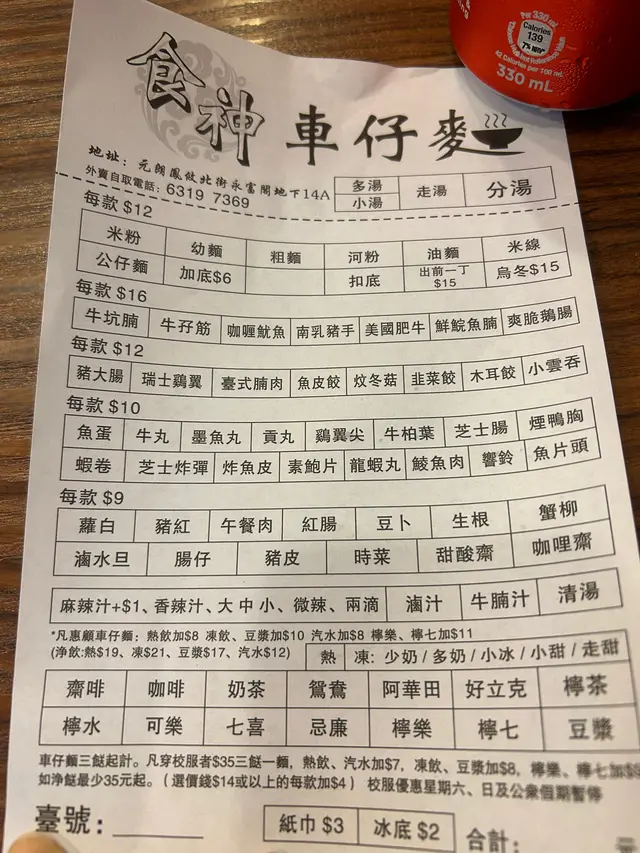 Per 330 mL
Calories
139
7% NRV*
42 Calories per 100 mL
330 mL
食神 車仔麥
地址：元朗鳳攸北街永富閣地下14A
外賣自取電話：6319 7369
多湯 走湯 分湯
小湯
每款 $12
米粉 幼麵 粗麵 河粉 油麵 米線
公仔麵 加底$6 扣底 出前一丁$15 烏冬$15
每款 $16
牛坑腩 牛孖筋 咖喱魷魚 南乳豬手 美國肥牛 鮮鯇魚腩 爽脆鵝腸
每款 $12
豬大腸 瑞士鷄翼 臺式腩肉 魚皮餃 炆冬菇 韭菜餃 木耳餃 小雲吞
每款 $10
魚蛋 牛丸 墨魚丸 貢丸 鷄翼尖 牛柏葉 芝士腸 煙鴨胸
蝦卷 芝士炸彈 炸魚皮 素鮑片 龍蝦丸 鯪魚肉 響鈴 魚片頭
每款 $9
蘿白 豬紅 午餐肉 紅腸 豆卜 生根 蟹柳
滷水旦 腸仔 豬皮 時菜 甜酸齋 咖哩齋
麻辣汁+$1、香辣汁、大 中 小、微辣、兩滴 滷汁 牛腩汁 清湯
*凡惠顧車仔麵：熱飲加$8 凍飲、豆漿加$10 汽水加$8 檸樂、檸七加$11
(净飲:熱$19、凍$21、豆漿$17、汽水$12) 熱 凍: 少奶 / 多奶 / 小冰 / 小甜 / 走甜
齋啡 咖啡 奶茶 鴛鴦 阿華田 好立克 檸茶
檸水 可樂 七喜 忌廉 檸樂 檸七 豆漿
車仔麵三餸起計。凡穿校服者$35三餸一麵，熱飲、汽水加$7，凍飲、豆漿加$8，檸樂、檸七加$9
如净餸最少35元起。（選價錢$14或以上的每款加$4） 校服優惠星期六、日及公衆假期暫停
臺號： 紙巾 $3 冰底 $2 合計： 元